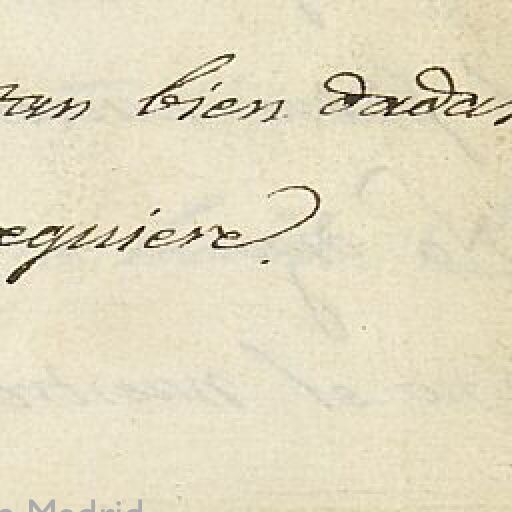 tan bien dadas
equiere.
Madrid